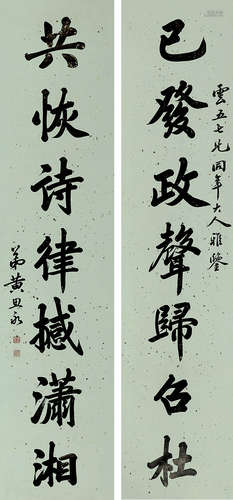 雲五七兄同年大人雅鑒
已發政聲歸召杜
共恢詩律撼瀟湘
弟黃思永